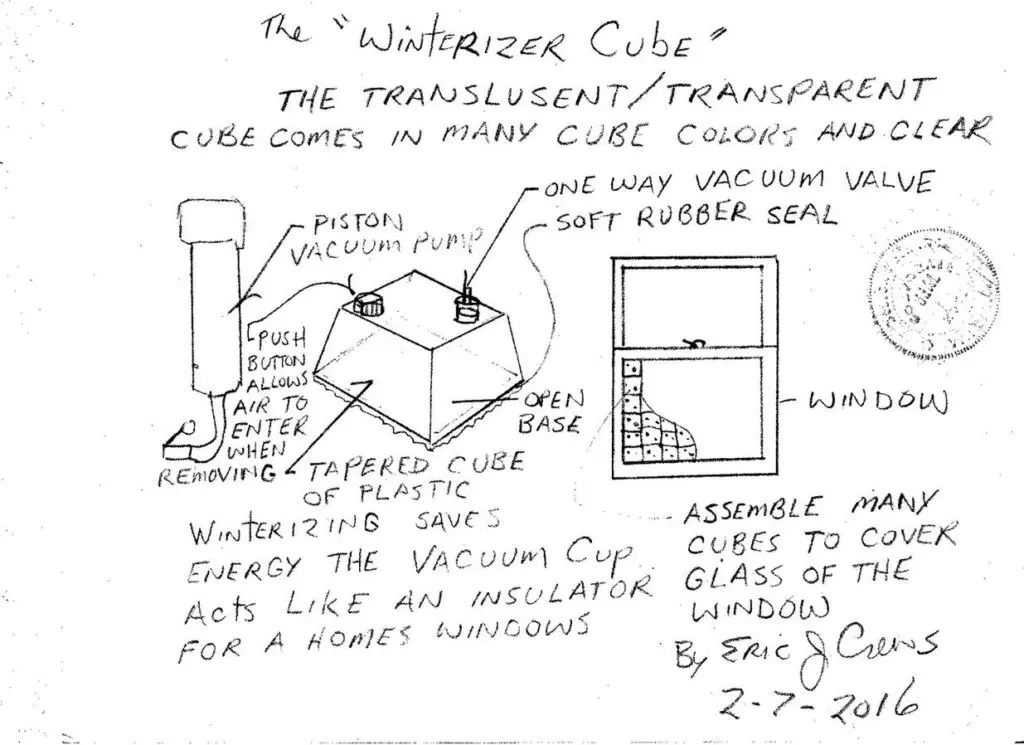 The "WINTERIZER CUbE"
THE TRANSLUSENT/TRANSPARENT
CUBE COMES IN MANY CUBE COLORS AND CLEAR
ONE WAY VACUUM VALVE
SOFT RUBBER SEAL
PISTON
VACUUM PUMP
PUSH
BUTTON
ALLOWS
AIR TO
ENTER
WHEN
REMOVING
OPEN
BASE
TAPERED CUBE
OF PLASTIC
WINDOW
WINTERIZING SAVES
ENERGY THE VACUUM CUP
ACTS LIKE AN INSULATOR
FOR A HOMES WINDOWS
ASSEMBLE MANY
CUBES TO COVER
GLASS OF THE
WINDOW
By ERIC J Crews
2-7-2016